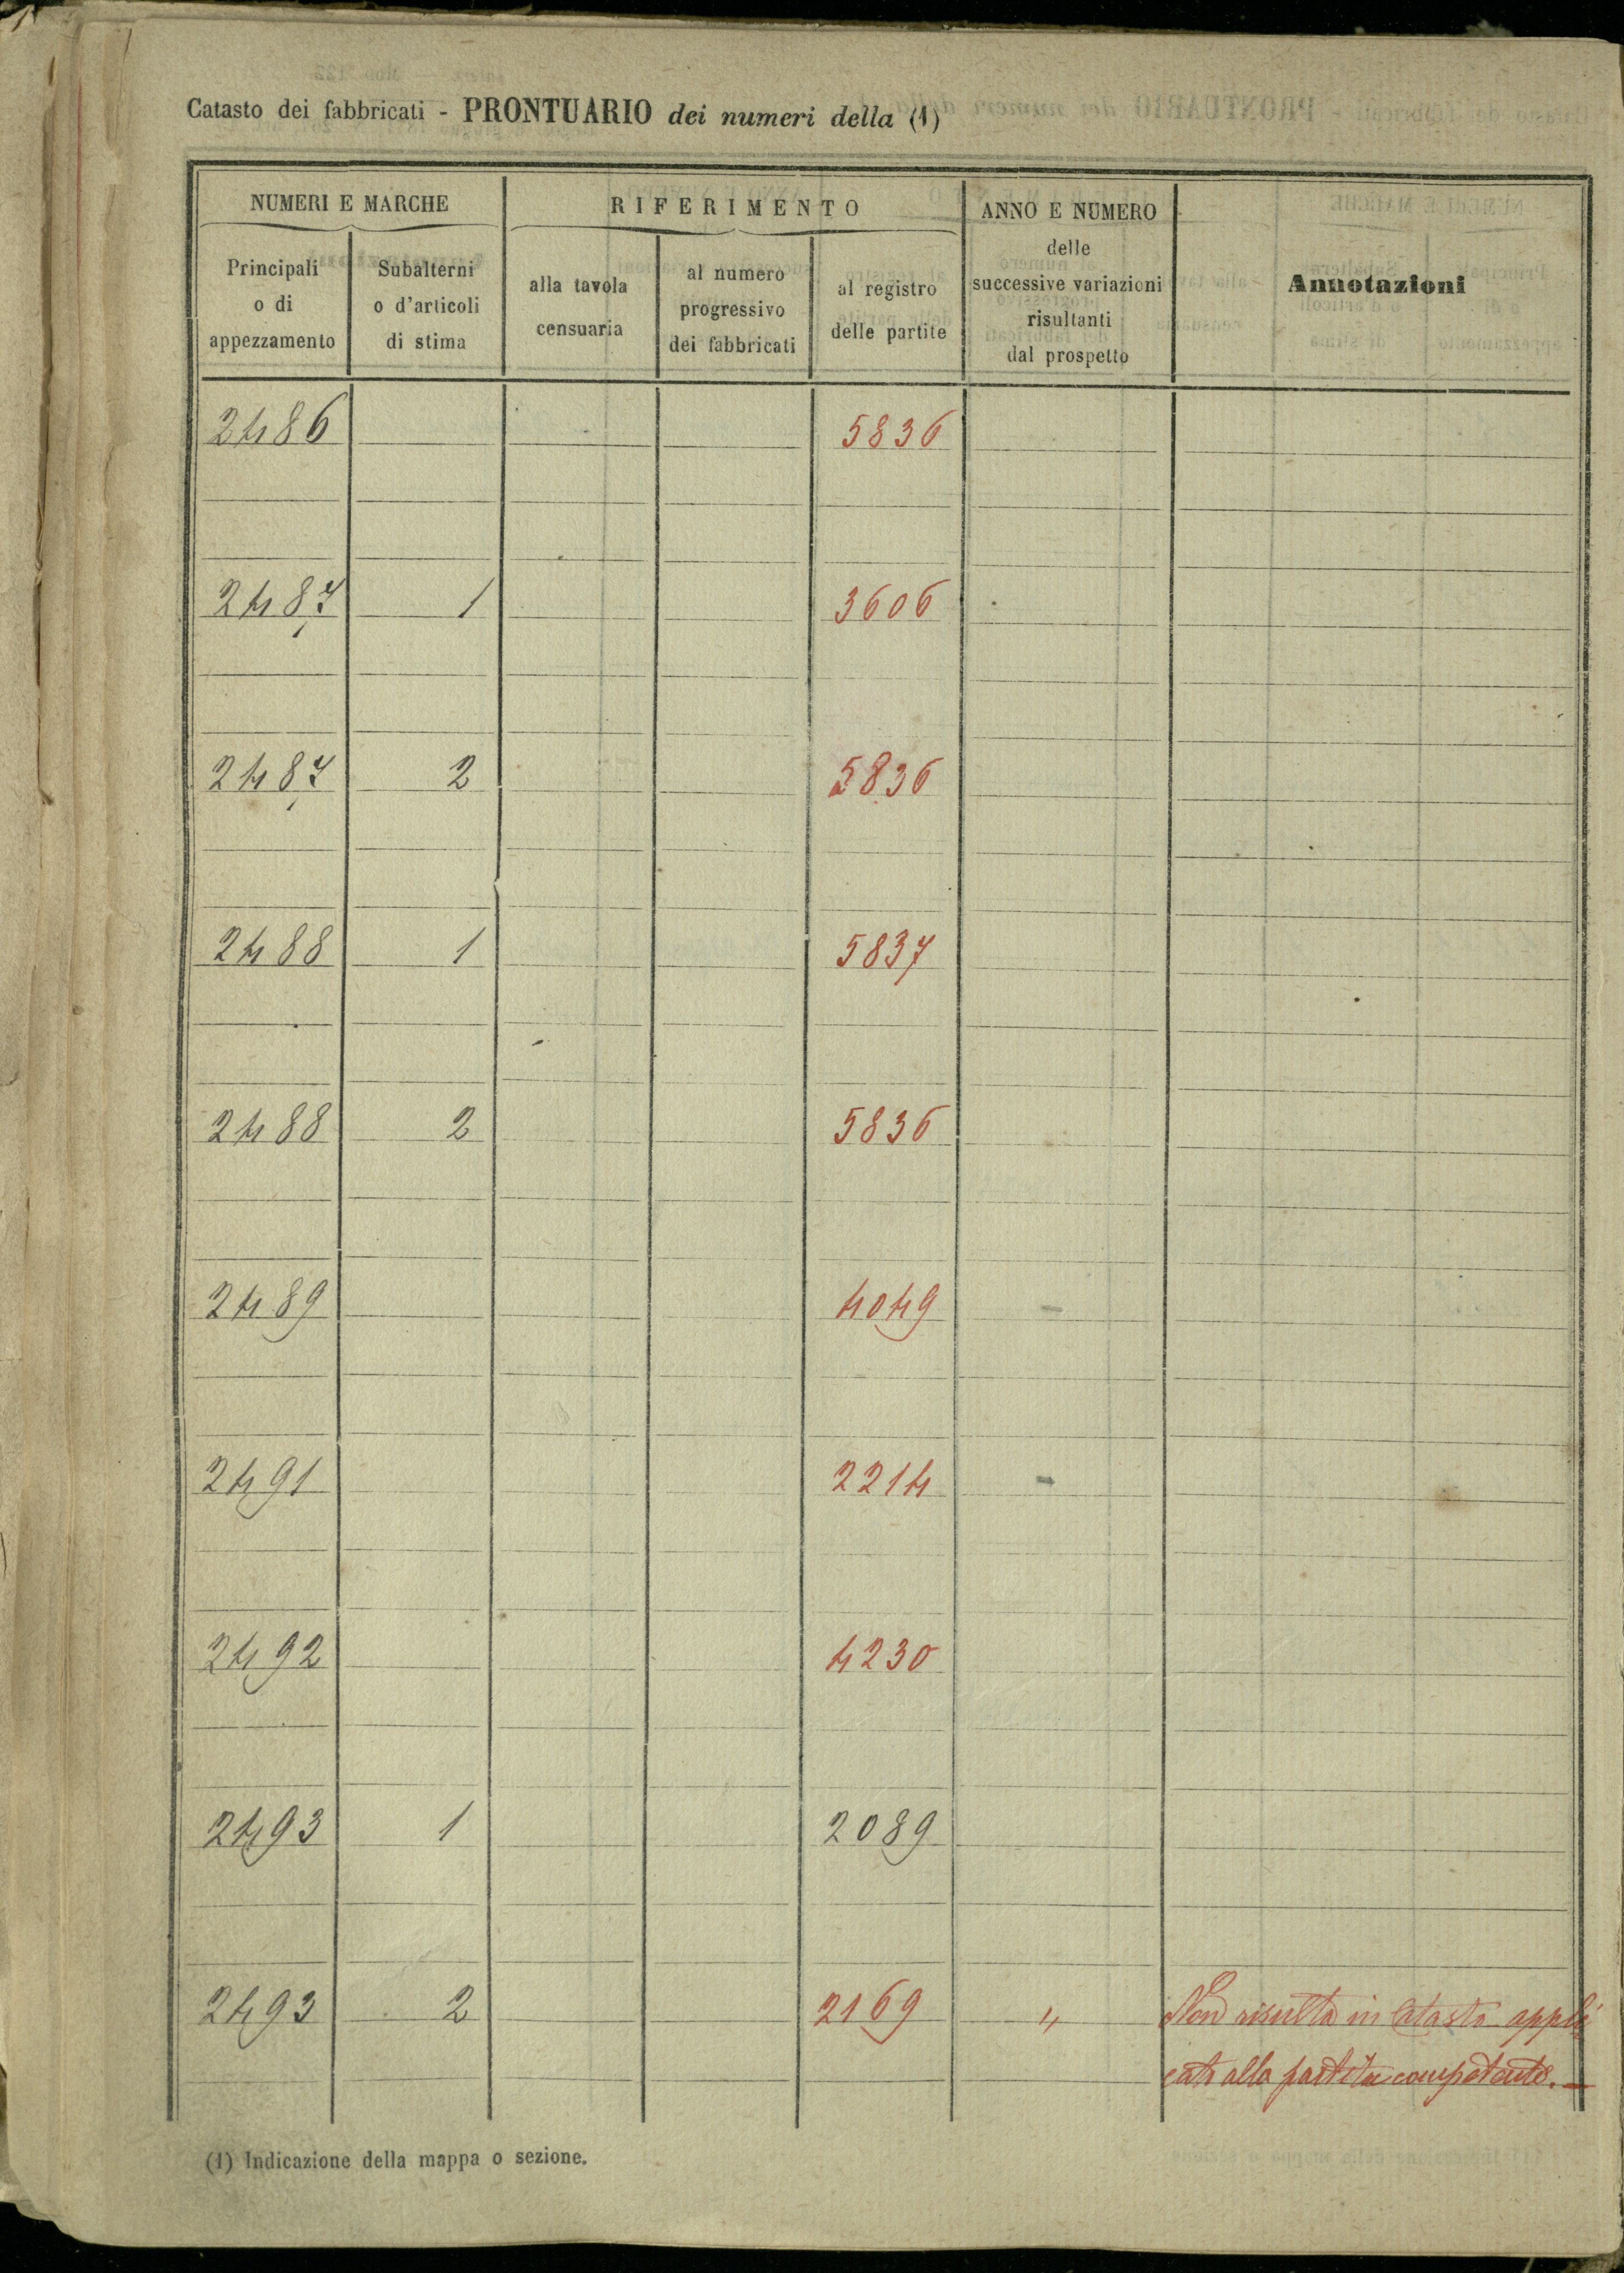 Catasto dei fabbricati - PRONTUARIO dei numeri della (1)
NUMERI E MARCHE RIFERIMENTO ANNO E NUMERO delle successive variazioni risultanti dal prospetto Annotazioni
Principali o di appezzamento Subalterni o d'articoli di stima alla tavola censuaria al numero progressivo dei fabbricati al registro delle partite
2486 5836
2487 1 3606
2487 2 5836
2488 1 5837
2488 2 5836
2489 4049
2491 2214
2492 4230
2493 1 2089
2493 2 2169 " Non risulta in Catasto appli
cato alla partita competente. —
(1) Indicazione della mappa o sezione.